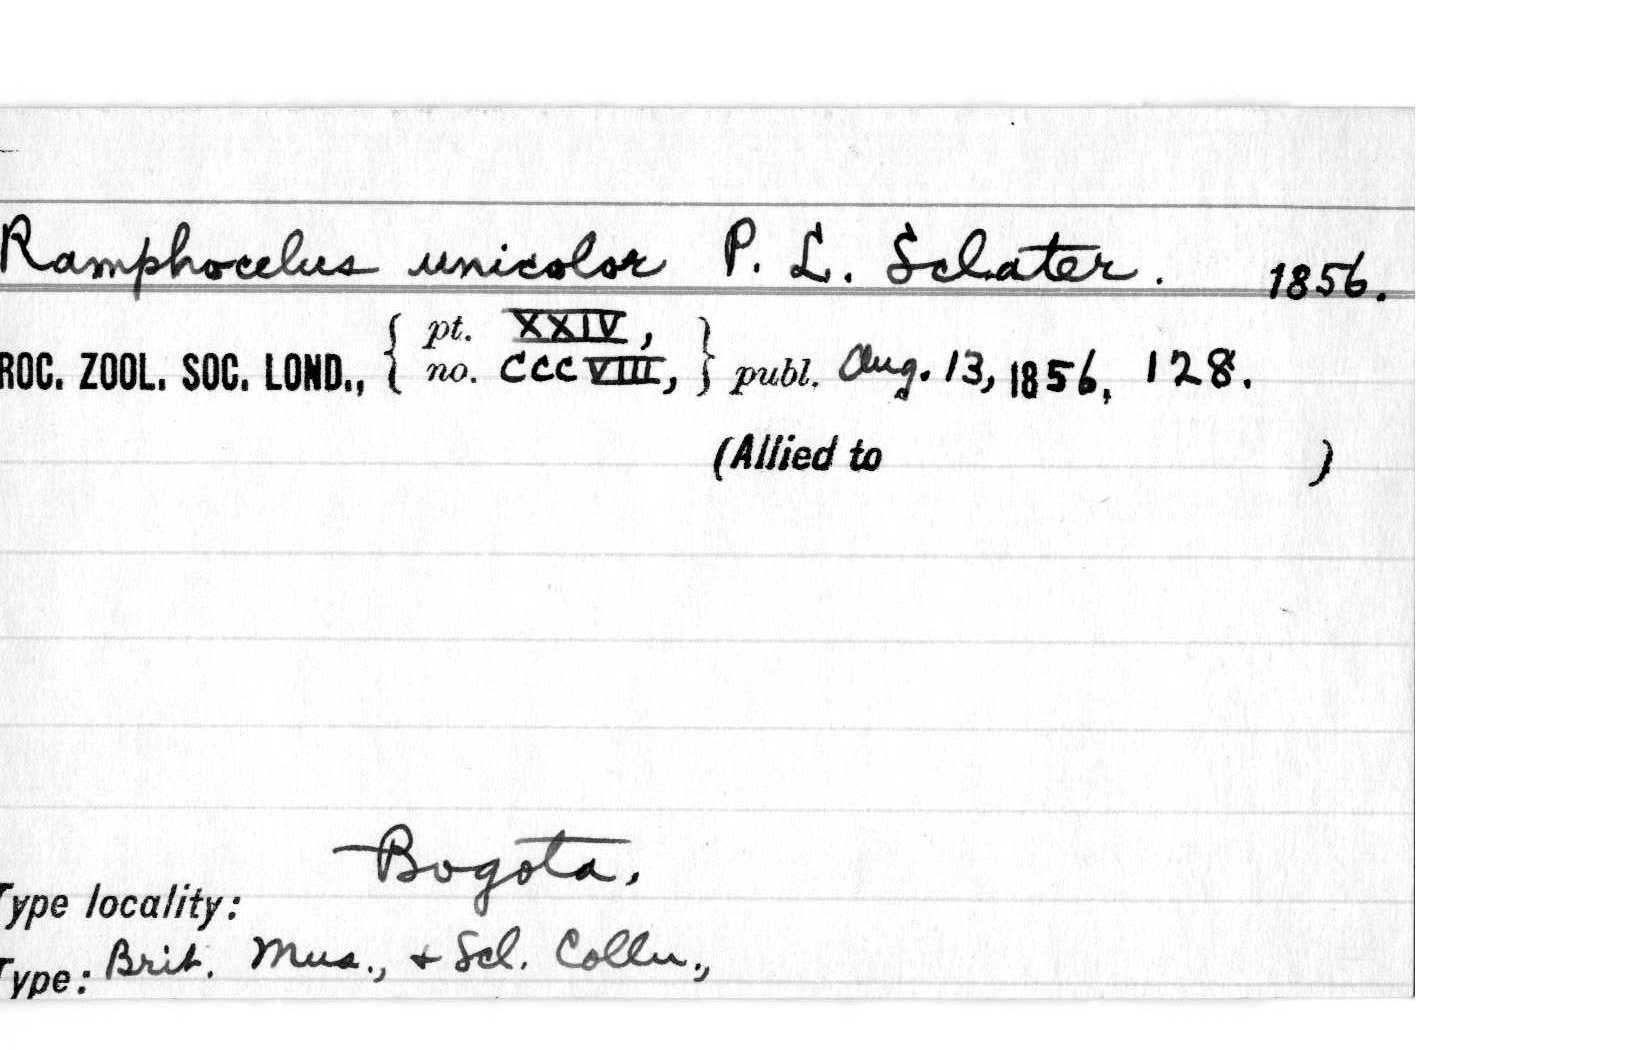 Ramphocelus unicolor P. L. Sclater. 1856.
ROC. ZOOL. SOC. LOND., { pt. XXIV, no. CCCVIII, } publ. Aug. 13, 1856, 128.
(Allied to )
Bogota,
Type locality:
Type: Brit. Mus., + Scl. Colln.,